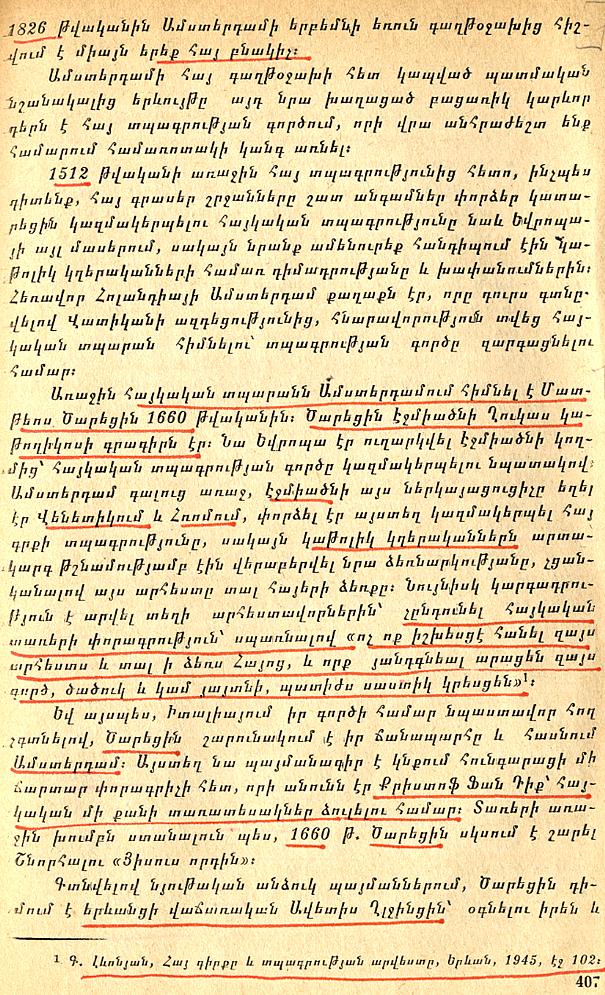 1826 թվականին Ամստերդամի երբեմնի եռուն գաղթօջախից հիշ-
վում է միայն երեք հայ բնակիչ։
Ամստերդամի հայ գաղթօջախի հետ կապված պատմական
նշանակալից երևույթը այդ նրա խաղացած բացառիկ կարևոր
դերն է հայ տպագրության գործում, որի վրա անհրաժեշտ ենք
համարում համառոտակի կանգ առնել։
1512 թվականի առաջին հայ տպագրությունից հետո, ինչպես
գիտենք, հայ գրասեր շրջանները շատ անգամներ փորձեր կատա-
րեցին կազմակերպելու հայկական տպագրությունը նաև Եվրոպա-
յի այլ մասերում, սակայն նրանք ամենուրեք հանդիպում էին կա-
թոլիկ կղերականների համառ դիմադրությանը և խափանումներին։
Հեռավոր Հոլանդիայի Ամստերդամ քաղաքն էր, որը դուրս գտնը-
վելով Վատիկանի ազդեցությունից, հնարավորություն տվեց հայ-
կական տպարան հիմնելու՝ տպագրության գործը զարգացնելու
համար։
Առաջին հայկական տպարանն Ամստերդամում հիմնել է Մատ-
թեոս Ծարեցին 1660 թվականին։ Ծարեցին Էջմիածնի Ղուկաս կա-
թողիկոսի գրագիրն էր։ Նա Եվրոպա էր ուղարկվել Էջմիածնի կող-
մից՝ հայկական տպագրության գործը կազմակերպելու նպատակով։
Ամստերդամ գալուց առաջ, Էջմիածնի այս ներկայացուցիչը եղել
էր Վենետիկում և Հռոմում, փորձել էր այստեղ կազմակերպել հայ
գրքի տպագրությունը, սակայն կաթոլիկ կղերականներն արտա-
կարգ թշնամությամբ էին վերաբերվել նրա ձեռնարկությանը, չցան-
կանալով այս արհեստը տալ հայերի ձեռքը։ Նույնիսկ կարգադրու-
թյուն է արվել տեղի արհեստավորներին՝ չընդունել հայկական
տառերի փորագրություն՝ սպառնալով «ոչ ոք իշխեսցէ հանել զայս
արհեստս և տալ ի ձեռս Հայոց, և որք յանդգնեալ արացեն զայս
գործ, ծածուկ և կամ յայտնի, պատիժս սաստիկ կրեսցեն»¹։
Եվ այսպես, Իտալիայում իր գործի համար նպաստավոր հող
չգտնելով, Ծարեցին շարունակում է իր ճանապարհը և հասնում
Ամստերդամ։ Այստեղ նա պայմանագիր է կնքում հունգարացի մի
ճարտար փորագրիչի հետ, որի անունն էր Քրիստոֆ Ֆան Դիք՝ հայ-
կական մի քանի տառատեսակներ ձուլելու համար։ Տառերի առա-
ջին խումբն ստանալուն պես, 1660 թ. Ծարեցին սկսում է շարել
Շնորհալու «Յիսուս որդին»։
Գտնվելով նյութական անձուկ պայմաններում, Ծարեցին դի-
մում է երևանցի վաճառական Ավետիս Ղլջինցին՝ օգնելու իրեն և
¹ Գ. Լևոնյան, Հայ գիրքը և տպագրության արվեստը, Երևան, 1945, էջ 102։
407